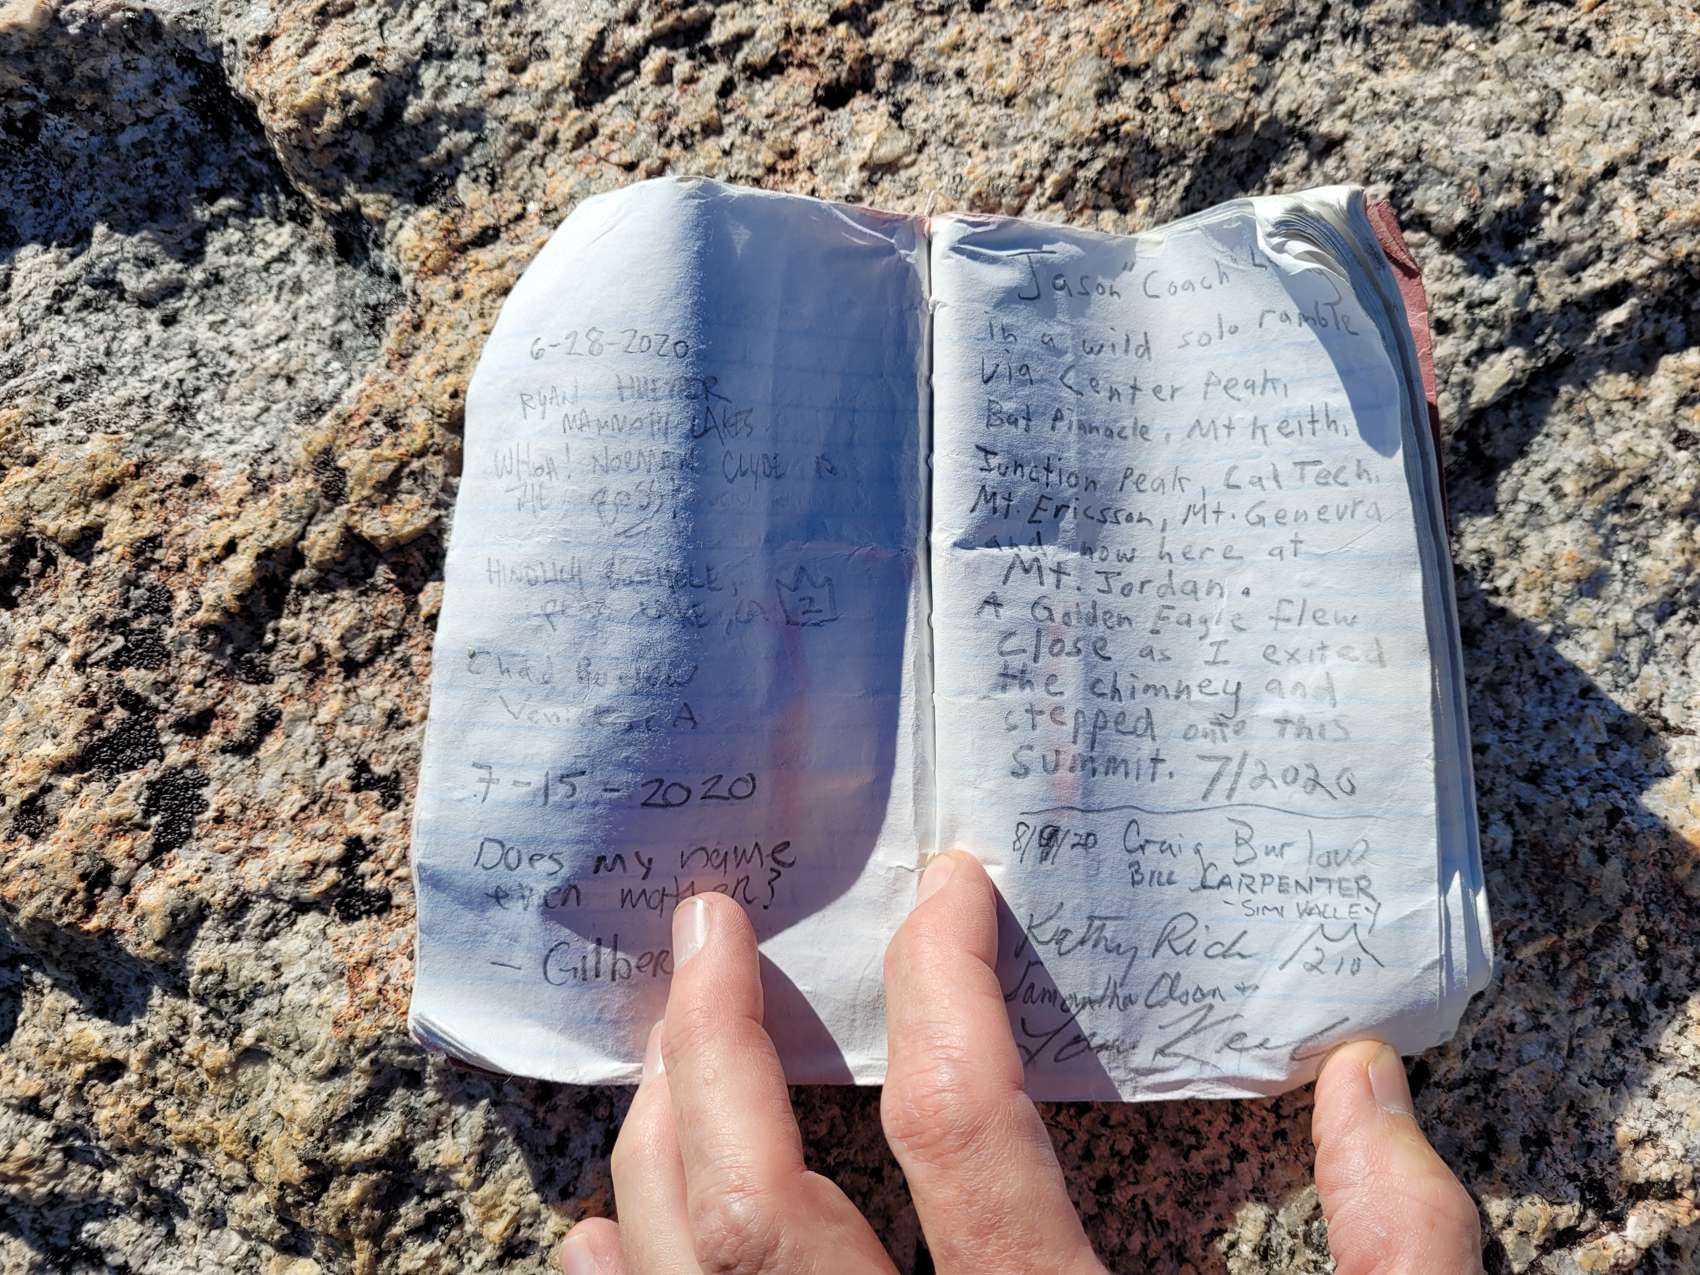 6-28-2020
RYAN
MAMMOTH LAKES
WHOA! NORMAN CLYDE IS
THE BOSS!
Chad
Venice CA
7-15-2020
Does my name
even matter?
- Gilber
Jason "Coach" L
in a wild solo ramble
Via Center Peak,
Bat Pinnacle, Mt Keith,
Junction Peak, Cal Tech,
Mt. Ericsson, Mt. Genevra
and now here at
Mt. Jordan.
A Golden Eagle flew
close as I exited
the chimney and
stepped onto this
summit. 7/2020
8/9/20 Craig Burlow
BILL CARPENTER
- SIMI VALLEY
Kathy Rich 210
Samantha Olson +